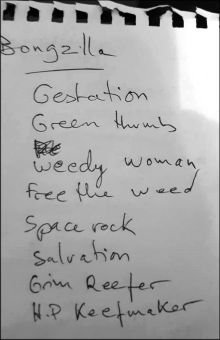 Bongzilla
Gestation
Green thumb
weedy woman
Free the weed
Space rock
Salvation
Grim Reefer
H.P Keefmaker